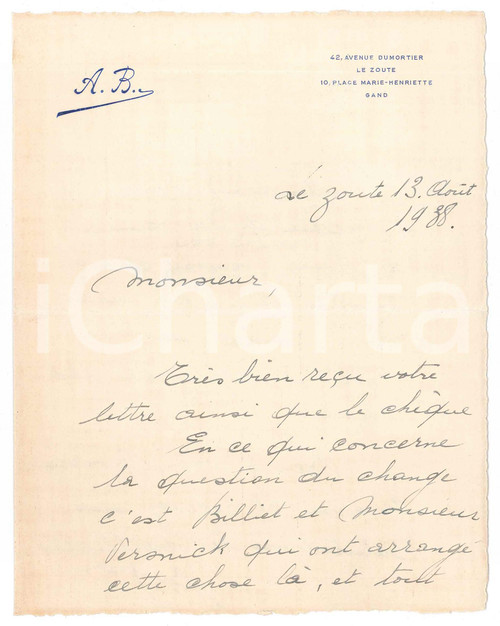 A. B.
42, AVENUE DUMORTIER
LE ZOUTE
10, PLACE MARIE-HENRIETTE
GAND
Le Zoute 13. Août
1938.
iCharta
Monsieur,
Très bien reçu votre
lettre ainsi que le chèque
En ce qui concerne
la question du change
c'est Billiet et Monsieur
Versnick qui ont arrangé
cette chose là, et tout